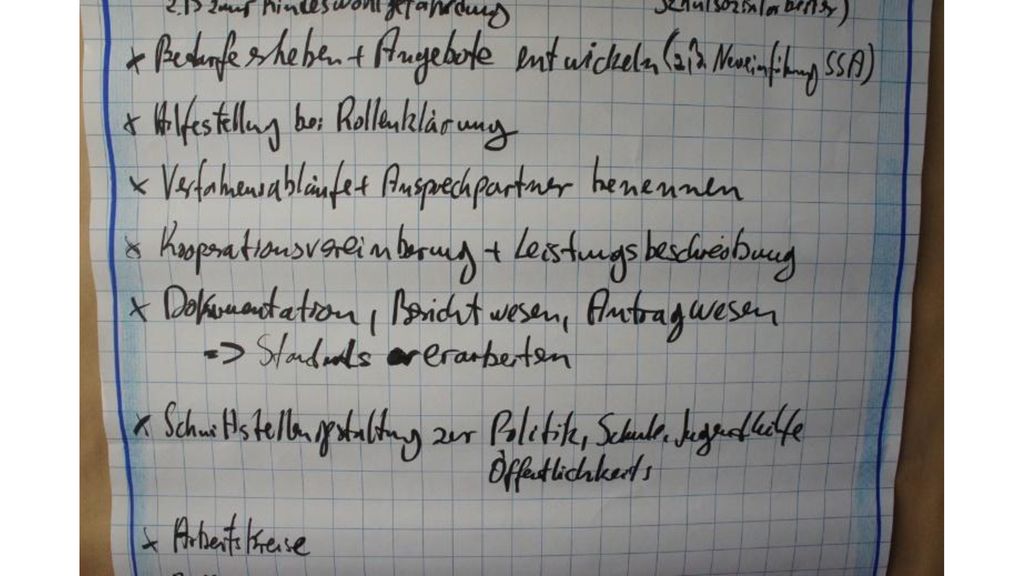 z.B zum Kindeswohlgefährdung Schulsozialarbeiter)
x Bedarfe erheben + Angebote entwickeln (z.B. Neueinführung SSA)
x Hilfestellung bei Rollenklärung
x Verfahrensabläufe + Ansprechpartner benennen
x Kooperationsvereinbarung + Leistungsbeschreibung
x Dokumentation, Berichtwesen, Antragwesen
=> Standards erarbeiten
x Schnittstellengestaltung zur Politik, Schule, Jugendhilfe
Öffentlichkeits
x Arbeitskreise